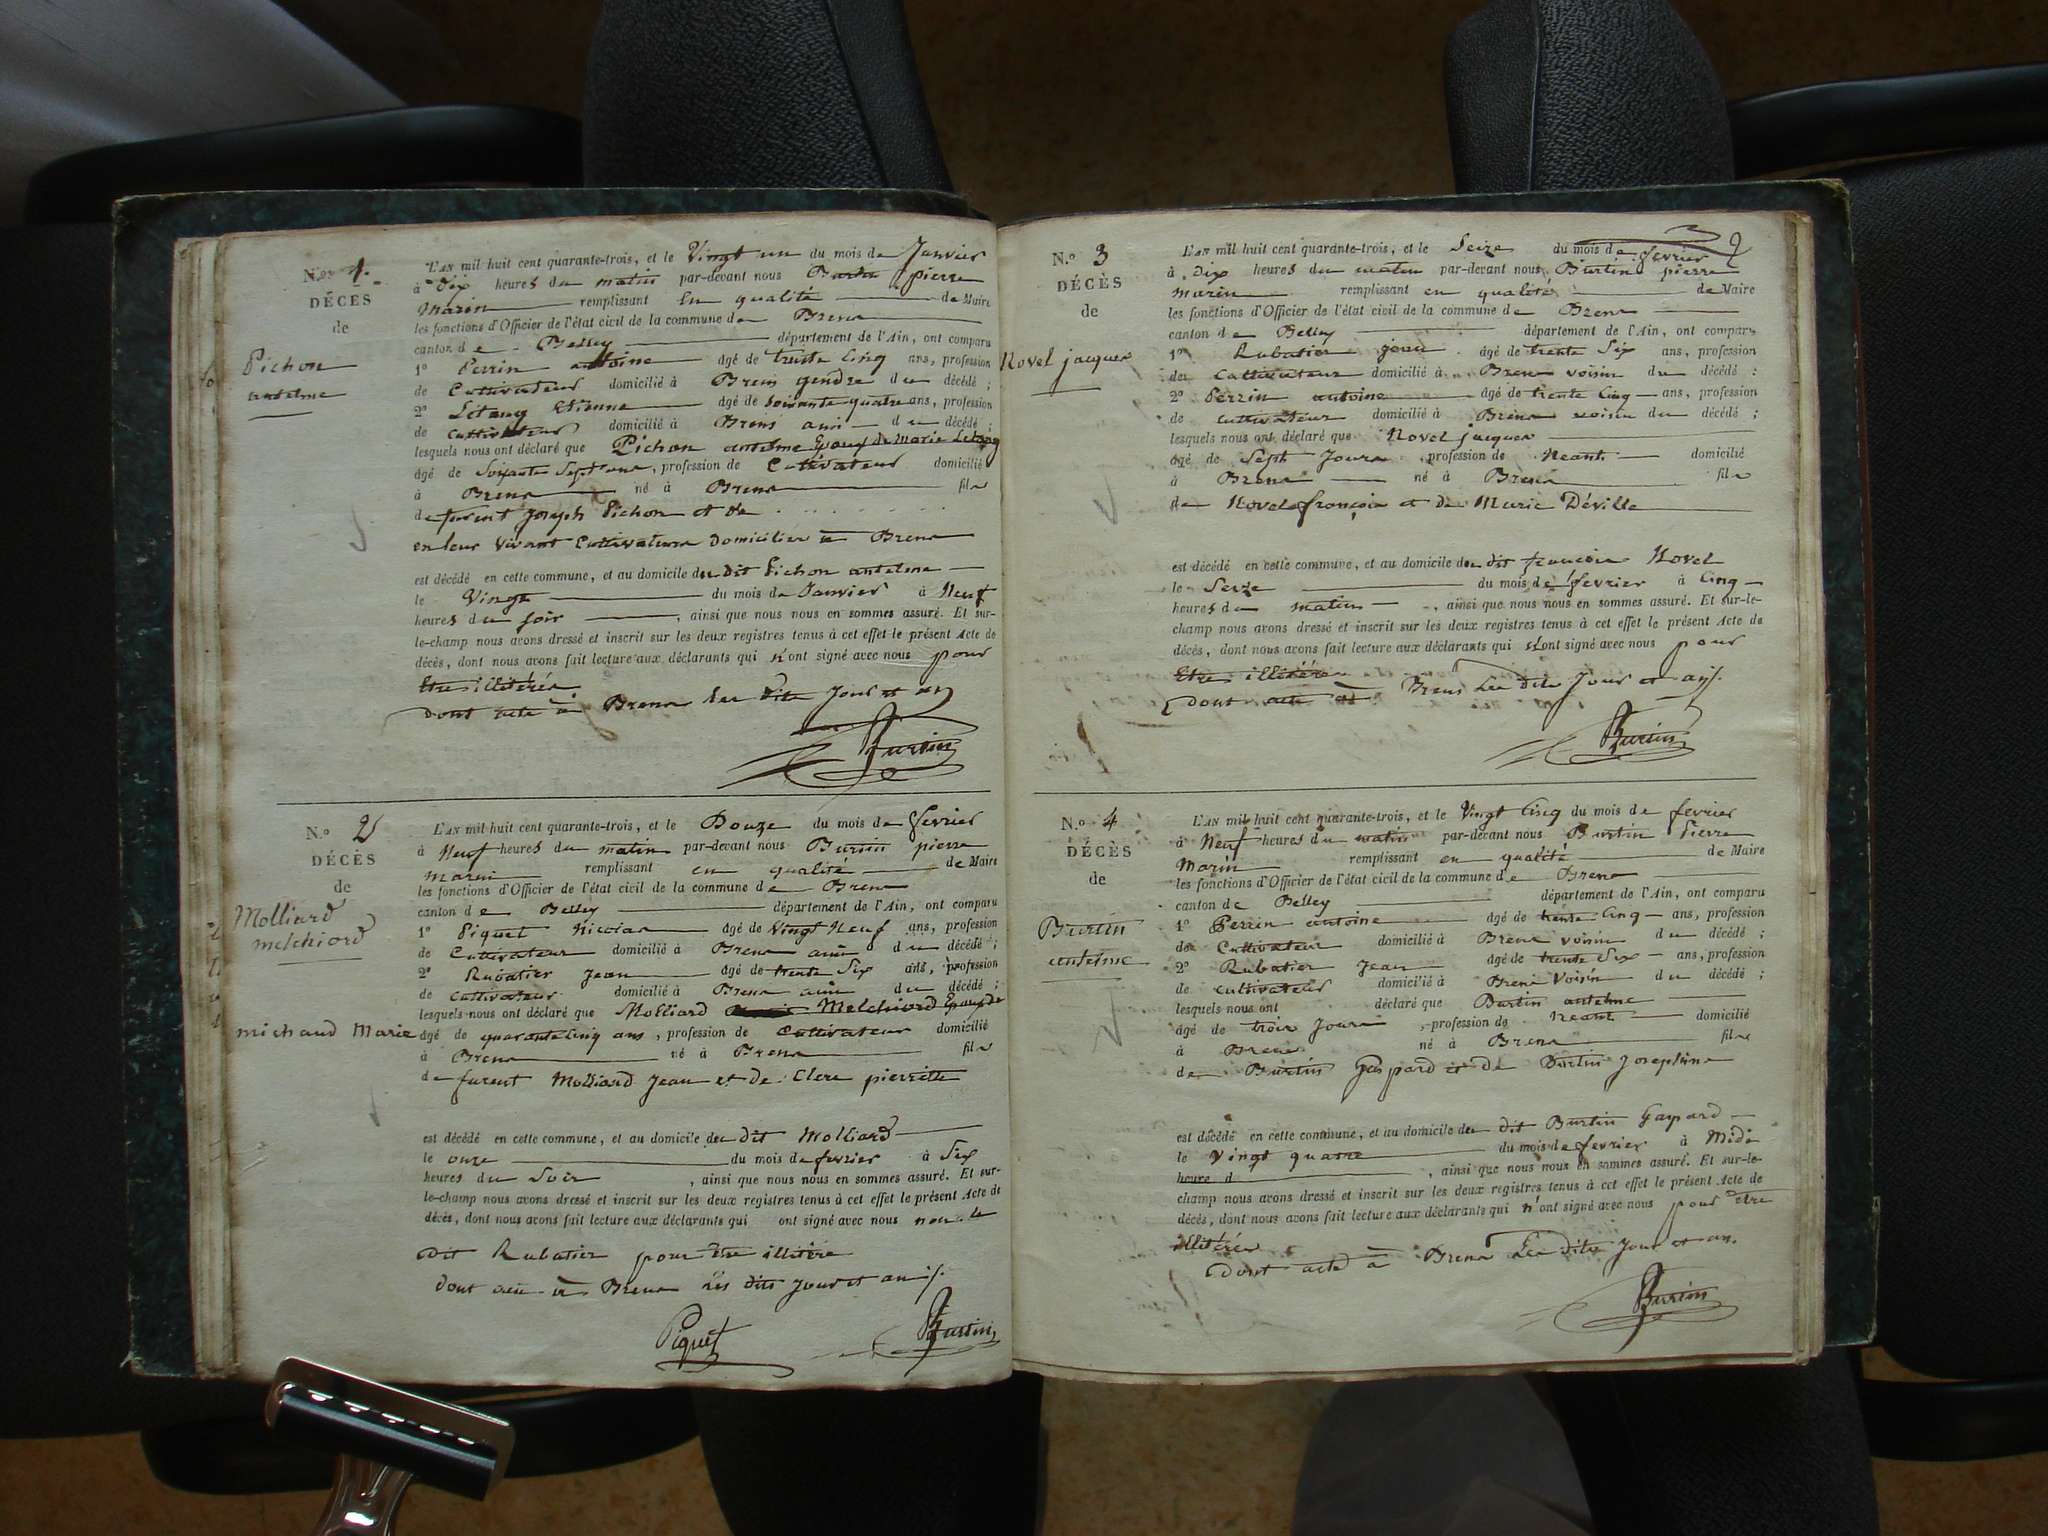 N.º 1.
DÉCÈS
de
Pichon
antelme
L'AN mil huit cent quarante-trois, et le Vingt un du mois de Janvier
à Dix heures du matin par-devant nous Burtin pierre
Marin remplissant en qualité de Maire
les fonctions d'Officier de l'état civil de la commune de Brens
canton de Belley département de l'Ain, ont comparu
1º Perrin antoine âgé de trente Cinq ans, profession
de Cultivateur domicilié à Brens gendre du décédé ;
2º Létang Etienne âgé de soixante quatre ans, profession
de Cultivateur domicilié à Brens ami du décédé ;
lesquels nous ont déclaré que Pichon antelme Epoux de Marie Letang
âgé de Soixante Sept ans, profession de Cultivateur domicilié
à Brens né à Brens fils
de furent Joseph Pichon et de
en leur vivant Cultivateurs domiciliés à Brens
est décédé en cette commune, et au domicile du dit Pichon antelme
le Vingt du mois de Janvier à Neuf
heures du soir, ainsi que nous nous en sommes assuré. Et sur-
le-champ nous avons dressé et inscrit sur les deux registres tenus à cet effet le présent Acte de
décès, dont nous avons fait lecture aux déclarants qui n'ont signé avec nous pour
Etre illitérés
dont acte à Brens les dits Jour et an
Burtin
N.º 2
DÉCÈS
de
Molliard
melchiord
michaud Marie
L'AN mil huit cent quarante-trois, et le Douze du mois de fevrier
à Neuf heures du matin par-devant nous Burtin pierre
Marin remplissant en qualité de Maire
les fonctions d'Officier de l'état civil de la commune de Brens
canton de Belley département de l'Ain, ont comparu
1º Piquet Nicolas âgé de Vingt Neuf ans, profession
de Cultivateur domicilié à Brens ami du décédé ;
2º Rubatier Jean âgé de trente Six ans, profession
de Cultivateur domicilié à Brens ami du décédé ;
lesquels nous ont déclaré que Molliard Melchiord Epoux de
âgé de quarante Cinq ans, profession de Cultivateur domicilié
à Brens né à Brens fils
de furent Molliard Jean et de Clerc pierrette
est décédé en cette commune, et au domicile du dit Molliard
le onze du mois de fevrier à Six
heures du Soir, ainsi que nous nous en sommes assuré. Et sur-
le-champ nous avons dressé et inscrit sur les deux registres tenus à cet effet le présent Acte de
décès, dont nous avons fait lecture aux déclarants qui ont signé avec nous non le
Dit Rubatier pour être illitére
dont acte à Brens les dits Jour et an
Piquet Burtin
N.º 3
DÉCÈS
de
Novel jacques
L'AN mil huit cent quarante-trois, et le Seize du mois de fevrier
à Dix heures du matin par-devant nous Burtin pierre
Marin remplissant en qualité de Maire
les fonctions d'Officier de l'état civil de la commune de Brens
canton de Belley département de l'Ain, ont comparu
1º Rubatier jean âgé de trente Six ans, profession
de Cultivateur domicilié à Brens voisin du décédé ;
2º Perrin antoine âgé de trente Cinq ans, profession
de Cultivateur domicilié à Brens voisin du décédé ;
lesquels nous ont déclaré que Novel jacques
âgé de Sept Jours, profession de Neant domicilié
à Brens né à Brens fils
de Novel françois et de Marie Déville
est décédé en cette commune, et au domicile du dit françois Novel
le Seize du mois de fevrier à Cinq
heures du matin, ainsi que nous nous en sommes assuré. Et sur-le-
champ nous avons dressé et inscrit sur les deux registres tenus à cet effet le présent Acte de
décès, dont nous avons fait lecture aux déclarants qui n'ont signé avec nous pour
Etre illitérés
dont acte à Brens les dits Jour et an
Burtin
N.º 4
DÉCÈS
de
Burtin
antelme
L'AN mil huit cent quarante-trois, et le Vingt Cinq du mois de fevrier
à Neuf heures du matin par-devant nous Burtin Pierre
Marin remplissant en qualité de Maire
les fonctions d'Officier de l'état civil de la commune de Brens
canton de Belley département de l'Ain, ont comparu
1º Perrin antoine âgé de trente Cinq ans, profession
de Cultivateur domicilié à Brens voisin du décédé ;
2º Rubatier Jean âgé de trente Six ans, profession
de cultivateur domicilié à Brens Voisin du décédé ;
lesquels nous ont déclaré que Burtin antelme
âgé de trois Jours, profession de neant domicilié
à Brens né à Brens fils
de Burtin Gaspard et de Burtin Josephine
est décédé en cette commune, et au domicile du dit Burtin Gaspard
le Vingt quatre du mois de fevrier à Midi
heure d, ainsi que nous nous en sommes assuré. Et sur-le-
champ nous avons dressé et inscrit sur les deux registres tenus à cet effet le présent Acte de
décès, dont nous avons fait lecture aux déclarants qui n'ont signé avec nous pour être
illitérés
dont acte à Brens les dits Jour et an.
Burtin